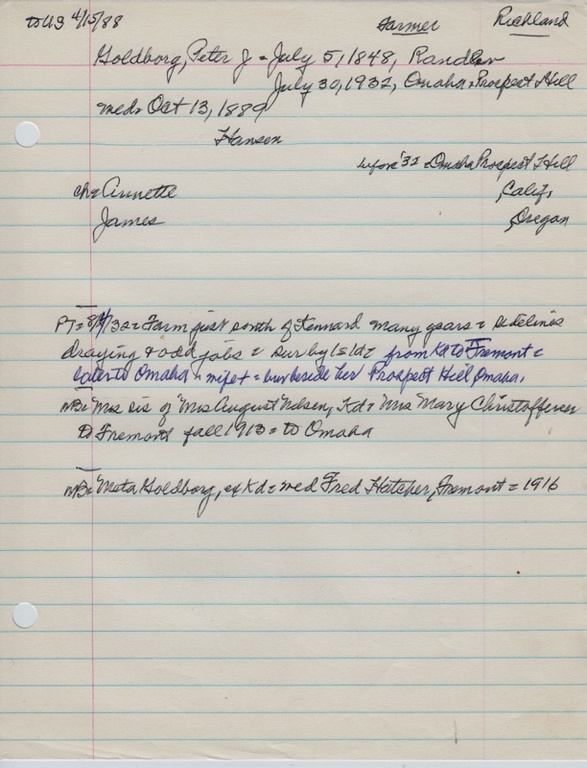 to US 4/15/88 Farmer Richland
Goldborg, Peter J = July 5, 1848, Randers
July 30, 1932, Omaha = Prospect Hill
med = Oct 13, 1889
Hansen
before '32 = Omaha Prospect Hill
ch = Annette , Calif,
James , Oregon
PT = 8/4/32 = Farm just south of Kennard many years = sidelines
draying & odd jobs = sur by 1s 1d = from Kd to Fremont =
later to Omaha = wife + = bur beside her Prospect Hill, Omaha.
NB = Mrs sis of Mrs August Nelsen, Kd = Mrs Mary Christoffersen
to Fremont fall 1913 = to Omaha
NB = Meta Goldborg, ex Kd = med Fred Hatcher, Fremont = 1916